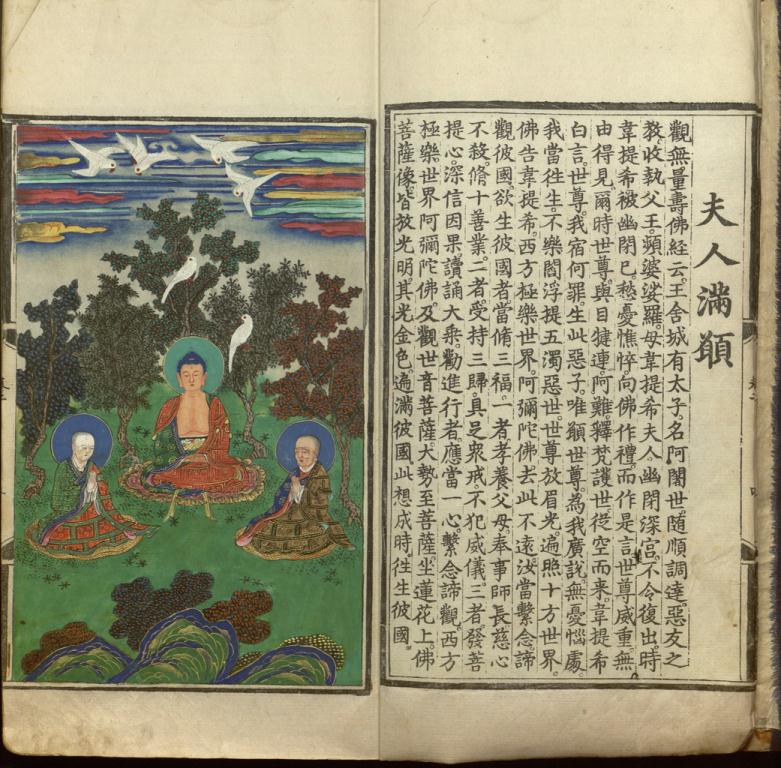 夫人滿願
觀無量壽佛經云。王舍城有太子。名阿闍世。隨順調達惡友之
教。收執父王。頻婆娑羅。母韋提希夫人。幽閉深宮。不令復出。時
韋提希被幽閉已。愁憂憔悴。向佛作禮。而作是言。世尊威重。無
由得見。爾時世尊。與目犍連。阿難。釋梵護世。從空而來。韋提希
白言。世尊。我宿何罪。生此惡子。唯願世尊。為我廣說。無憂惱處。
我當徃生。不樂閻浮提五濁惡世。世尊放眉光。遍照十方世界。
佛告韋提希。西方極樂世界。阿彌陀佛。去此不遠。汝當繫念諦
觀彼國。欲生彼國者。當脩三福。一者孝養父母。奉事師長。慈心
不殺。脩十善業。二者受持三歸。具足眾戒。不犯威儀。三者發菩
提心。深信因果。讀誦大乘。勸進行者。應當一心。繫念諦觀。西方
極樂世界。阿彌陀佛。及觀世音菩薩。大勢至菩薩。坐蓮花上。佛
菩薩像。皆放光明。其光金色。遍滿彼國。此想成時。徃生彼國。